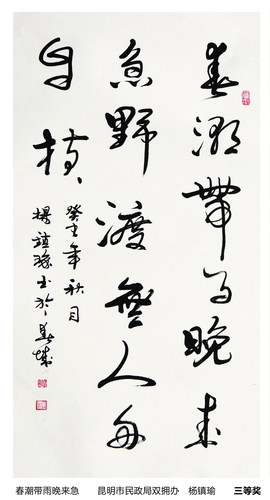 春潮帶雨晚来
急野渡無人舟
自横
癸年秋月
楊鎮瑜书於春城
春潮带雨晚来急 昆明市民政局双拥办 杨镇瑜 三等奖